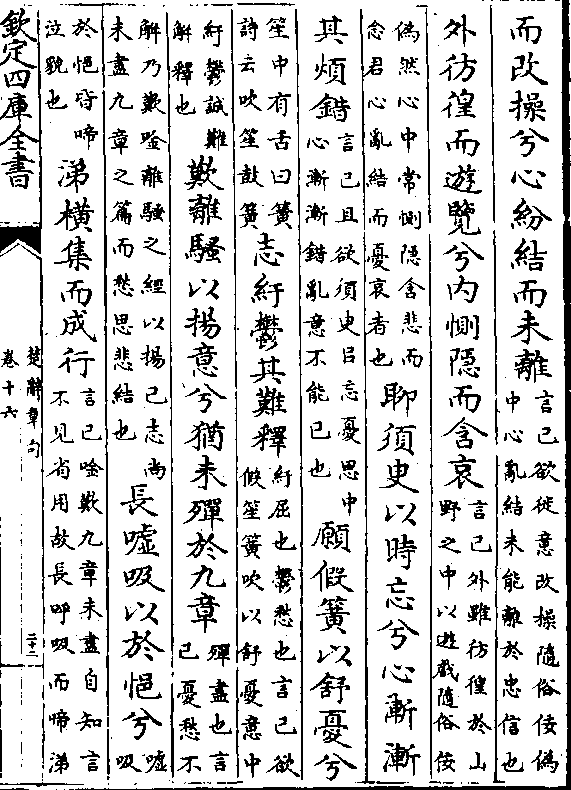 而改操兮心紛結而未離言己欲徙意改操隨俗佞偽
中心亂結未能離於忠信也
外彷徨而遊覽兮内惻隠而含哀言己外雖彷徨於山
野之中以遊戲隨俗佞
偽然心中常惻隠含悲而
念君心亂結而憂哀者也
聊須臾以時忘兮心漸漸
其煩錯言己且欲須臾㠯忘憂思中
心漸漸錯亂意不能已也
願假簧以舒憂兮
笙中有舌曰簧
詩云吹笙鼓簧
志紆鬱其難釋紆屈也鬱愁也言己欲
假笙簧吹以舒憂意中
紆鬱誠難
解釋也
歎離騷以揚意兮猶未殫於九章殫盡也言
己憂愁不
解乃歎唫離騷之經以揚己志尚
未盡九章之篇而愁思悲結也
長嘘吸以於悒兮嘘
吸
於悒皆啼
泣貌也
涕横集而成行言己唫歎九章未盡自知言
不見省用故長呼吸而啼涕
欽定四庫全書
楚辭章句
卷十六
二十二